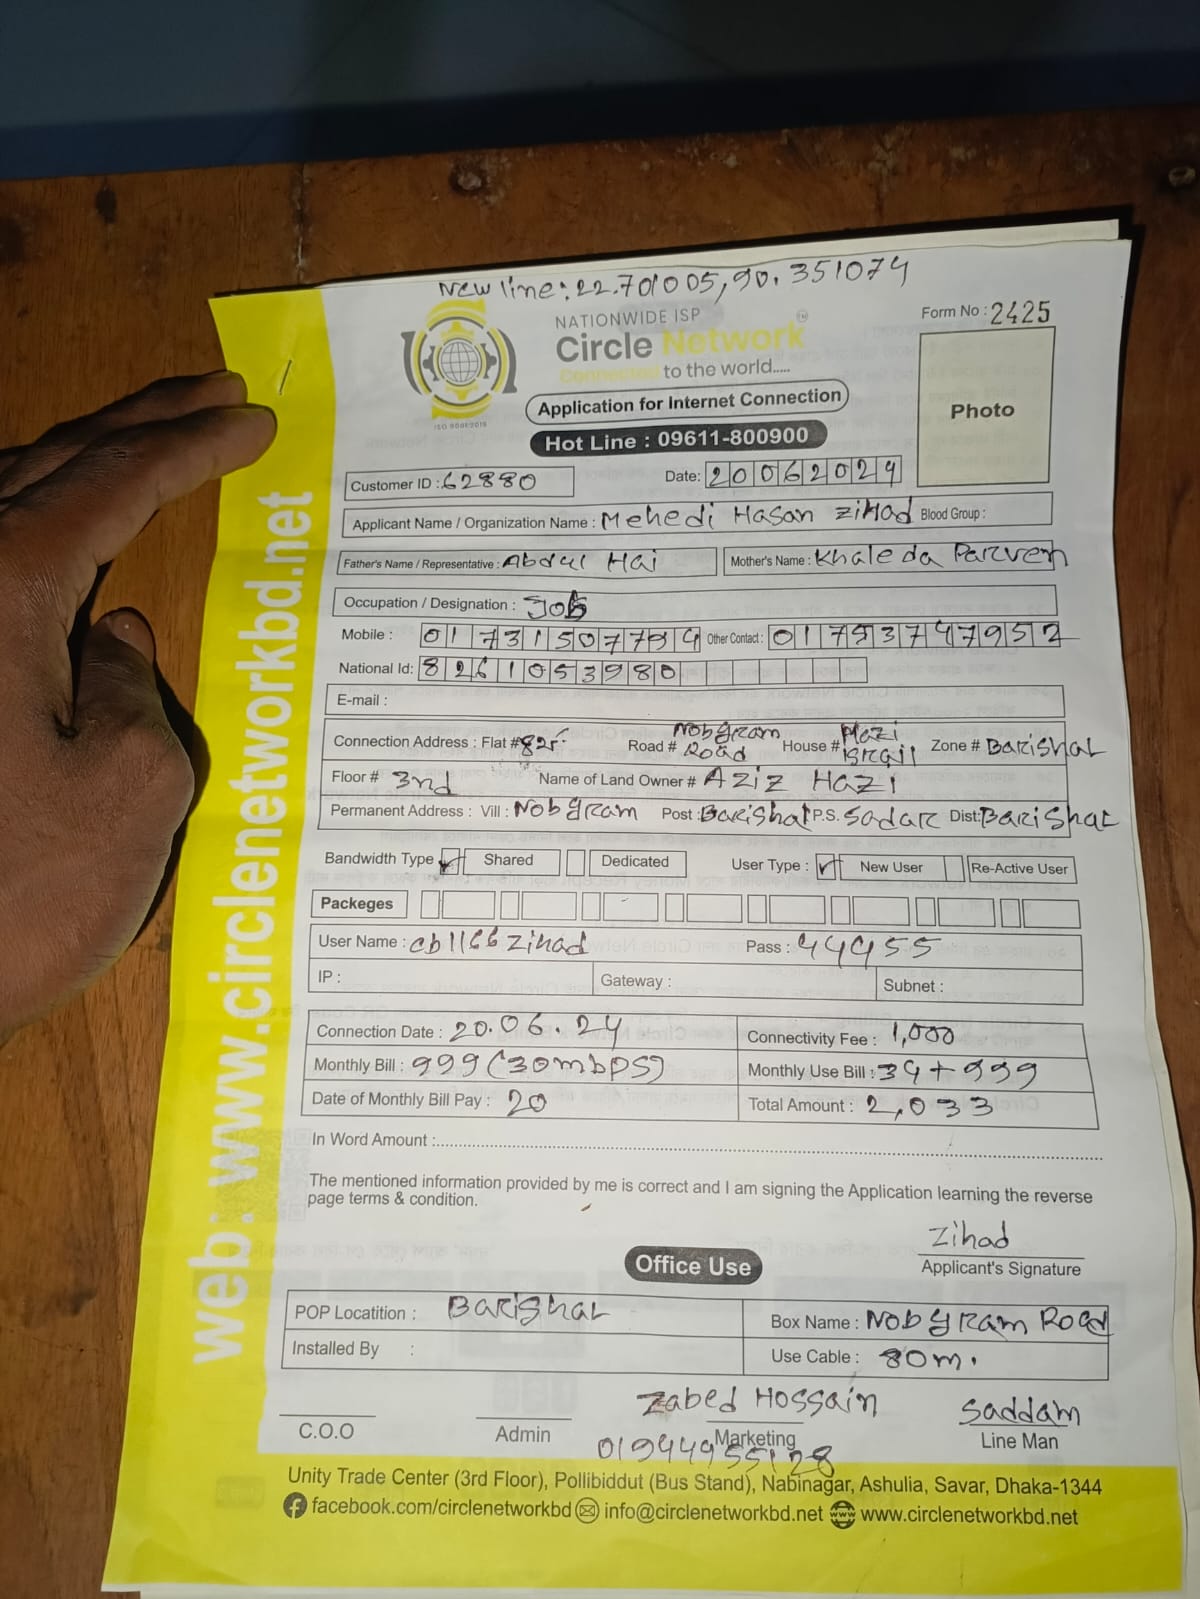 New line: 22.701005, 90.351074
NATIONWIDE ISP
Circle Network
Connected to the world.....
ISO 9001:2015
Form No : 2425
Photo
Application for Internet Connection
Hot Line : 09611-800900
Customer ID : 62880 Date: 20062024
Applicant Name / Organization Name : Mehedi Hasan Zihad Blood Group :
Father's Name / Representative : Abdul Hai Mother's Name : Khaleda Parveen
Occupation / Designation : Job
Mobile : 01731507794 Other Contact : 01753747952
National Id: 8261053980
E-mail :
Connection Address : Flat # Road # Nobgram Road House # Hazi Israil Zone # Barishal
Floor # 3rd Name of Land Owner # Aziz Hazi
Permanent Address : Vill : Nobgram Post : Barishal P.S. Sadar Dist: Barishal
Bandwidth Type Shared Dedicated User Type : New User Re-Active User
Packeges
User Name : cb1166zihad Pass : 44455
IP : Gateway : Subnet :
Connection Date : 20.06.24 Connectivity Fee : 1,000
Monthly Bill : 999 (30mbps) Monthly Use Bill : 34+999
Date of Monthly Bill Pay : 20 Total Amount : 2,033
In Word Amount :
The mentioned information provided by me is correct and I am signing the Application learning the reverse
page terms & condition.
Zihad
Applicant's Signature
Office Use
POP Locatition : Barishal Box Name : Nobgram Road
Installed By : Use Cable : 80m.
Zabed Hossain Saddam
C.O.O Admin Marketing Line Man
01944955128
Unity Trade Center (3rd Floor), Pollibiddut (Bus Stand), Nabinagar, Ashulia, Savar, Dhaka-1344
facebook.com/circlenetworkbd info@circlenetworkbd.net www.circlenetworkbd.net
web: www.circlenetworkbd.net